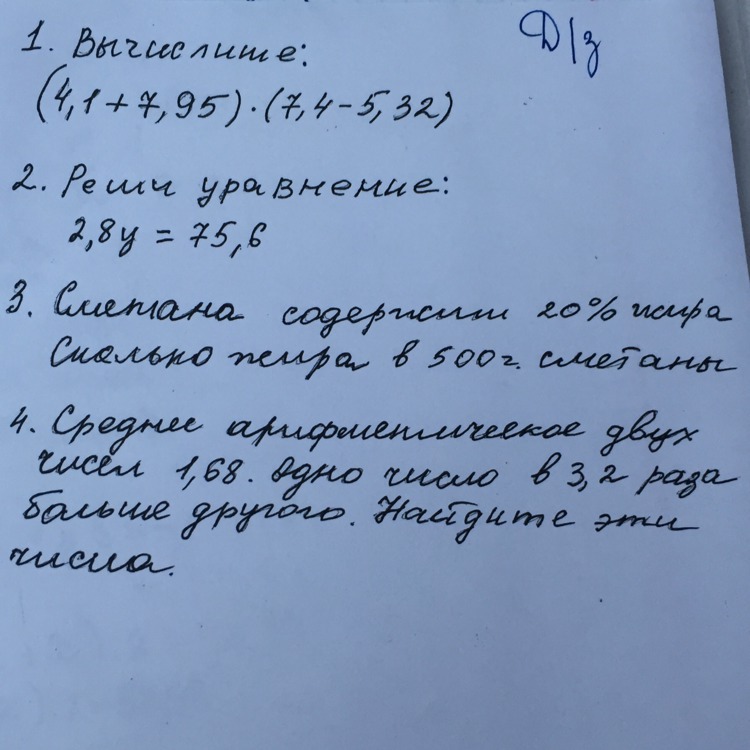 Д/з
1. Вычислите:
(4,1+7,95)·(7,4-5,32)
2. Реши уравнение:
2,8y = 75,6
3. Сметана содержит 20% жира
Сколько жира в 500г. сметаны
4. Среднее арифметическое двух
чисел 1,68. Одно число в 3,2 раза
больше другого. Найдите эти
числа.